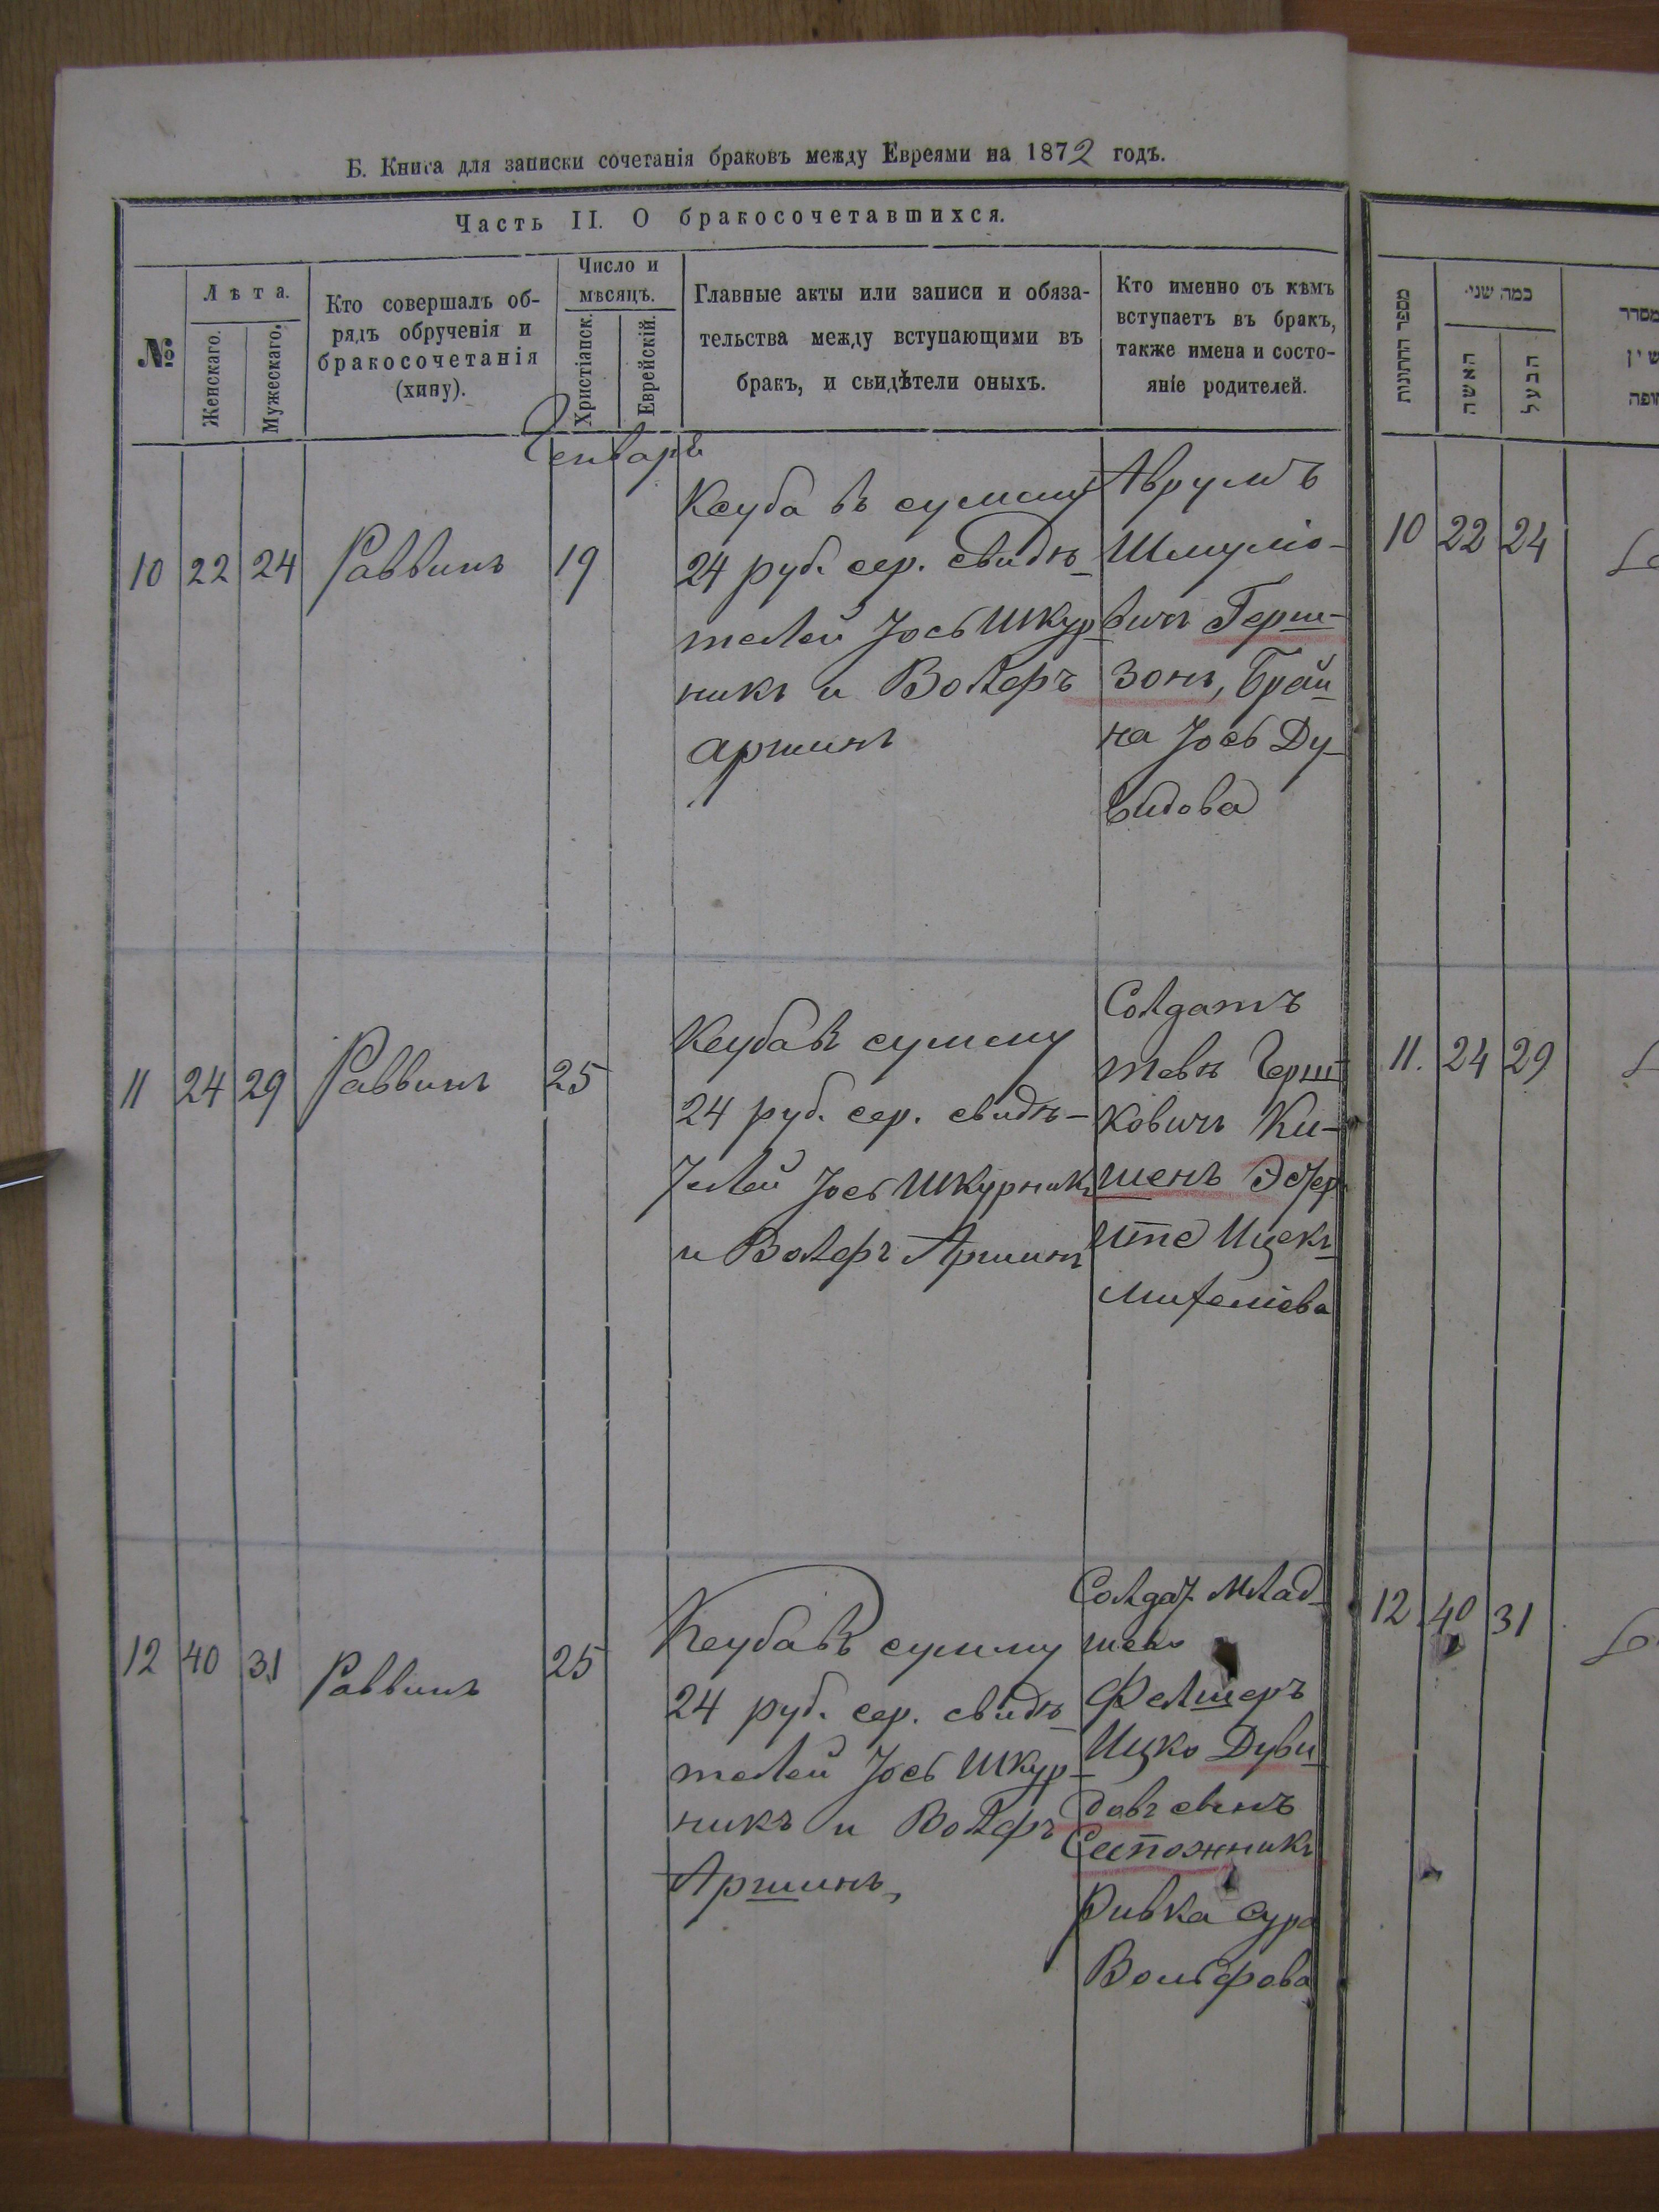 Б. Книга для записки сочетанія браковъ между Евреями на 1872 годъ.
Часть II. О бракосочетавшихся.
№
Лѣта.
Женскаго.
Мужескаго.
Кто совершалъ об-
рядъ обрученія и
бракосочетанія
(хину).
Число и
мѣсяцъ.
Христіанск.
Еврейскій.
Главные акты или записи и обяза-
тельства между вступающими въ
бракъ, и свидѣтели оныхъ.
Кто именно съ кѣмъ
вступаетъ въ бракъ,
также имена и состо-
яніе родителей.
Генварь
10 22 24 Раввинъ 19
Ксуба въ сумму
24 руб. сер. свидѣ-
телей Іось Шкур-
никъ и Волфъ
аршинъ
Аврумъ
Шмуліо-
вичъ Герш-
зонъ, Брай-
на Іось Ду-
видова
11 24 29 Раввинъ 25
Ксуба въ сумму
24 руб. сер. свидѣ-
телей Іось Шкурникъ
и Волфъ Аршинъ
Солдатъ
тевѣ Герш-
ковичъ Ки-
шенъ Эстер
ите Ицекъ
Михеліова
12 40 31 Раввинъ 25
Ксуба въ сумму
24 руб. сер. свидѣ-
телей Іось Шкур-
никъ и Волфъ
Аршинъ
Солдат. млад-
шево
Фелшеръ
Ицко Дуви-
довъ сынъ
Сапожникъ
Ривка Сура
Вольфова
מספר החתונות
כמה שני.
האשה
הבעל
10 22 24
11. 24 29
12 40 31